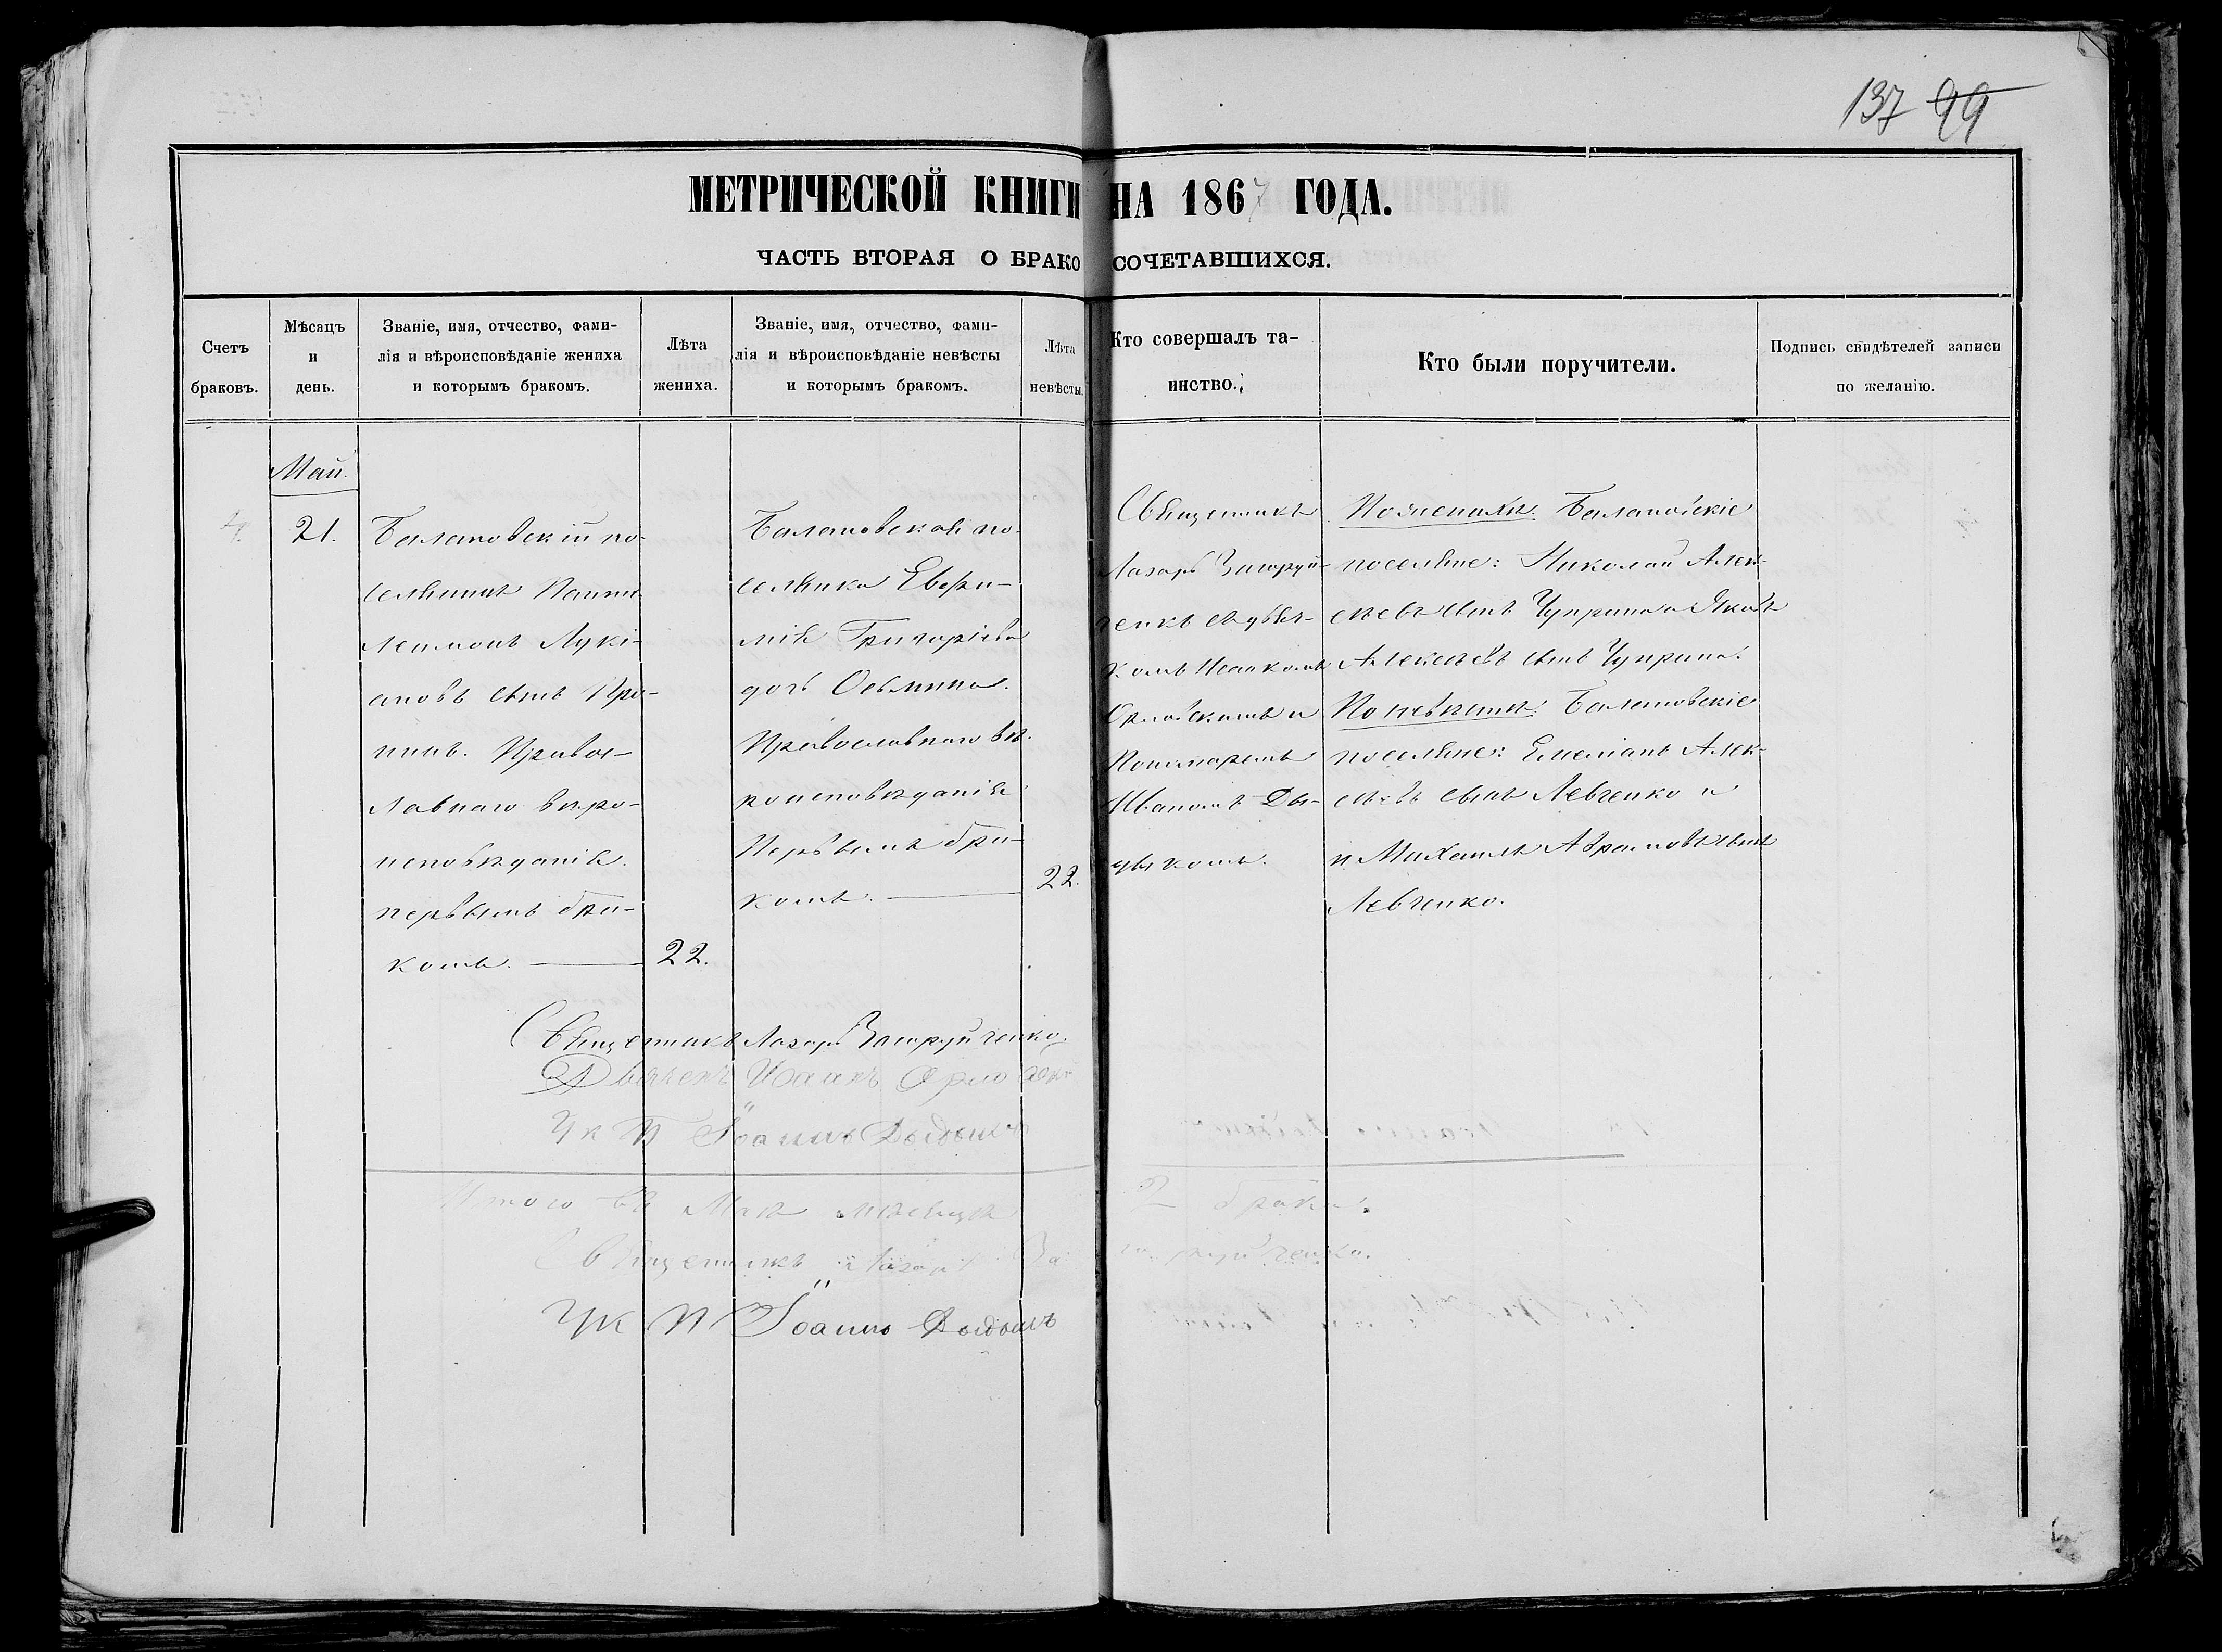 137 99
МЕТРИЧЕСКОЙ КНИГИ НА 1867 ГОДА.
ЧАСТЬ ВТОРАЯ О БРАКОСОЧЕТАВШИХСЯ.
Счетъ
браковъ.
Мѣсяцъ
и
день.
Званіе, имя, отчество, фами-
лія и вѣроисповѣданіе жениха
и которымъ бракомъ.
Лѣта
жениха.
Званіе, имя, отчество, фами-
лія и вѣроисповѣданіе невѣсты
и которымъ бракомъ.
Лѣта
невѣсты.
Кто совершалъ та-
инство.
Кто были поручители.
Подпись свидѣтелей записи
по желанію.
4.
Май.
21.
Балатовскій по-
селянинъ Панте
леимонъ Лукі-
ановъ сынъ
Правос-
лавнаго вѣро-
исповѣданія.
первымъ бра-
комъ.
22.
Балатовская по-
селянка Евфи-
мія Григоріева
дочь Осьмина.
Православнаго вѣ-
роисповѣданія
Первымъ бра-
комъ.
22.
Священникъ
Лазарь Загоруй-
ченкъ съ дьяч-
комъ Исаакомъ
Орловскимъ и
Пономаремъ
Иваномъ Ды-
дыкомъ.
По женихѣ: Балатовскіе
поселяне: Николай Алек-
сѣевъ сынъ Чуприна и Яковъ
Алексѣевъ сынъ Чуприна.
По невѣстѣ: Балатовскіе
поселяне: Емеліанъ Алек-
сѣевъ сынъ Левченко и
и Михаилъ Аврамовъ сынъ
Левченко.
Священникъ Лазарь Загоруйченко.
Дьячекъ Исаакъ
Іоаннъ Дыдыкъ
Итого въ Маѣ мѣсяцѣ 2 брака.
Священникъ Лазарь Загоруйченко.
Іоаннъ Дыдыкъ